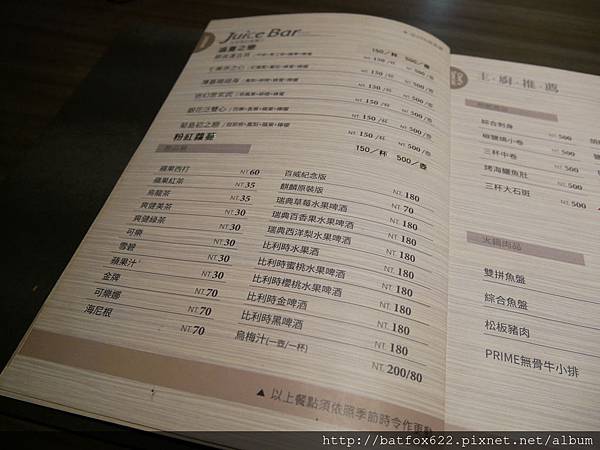 Juice Bar
溫夏之戀
150／杯 500／壺
NT. 150 /杯 NT. 500/壺
NT. 150 /杯 NT. 500/壺
NT. 150 /杯 NT. 500/壺
NT. 150 /杯 NT. 500/壺
NT. 150 /杯 NT. 500/壺
NT. 150 /杯 NT. 500/壺
粉紅蘿莉
150／杯 500／壺
蘋果西打 NT.60
蘋果紅茶 NT.35
烏龍茶 NT.35
爽健美茶 NT.30
爽健綠茶 NT.30
可樂 NT.30
雪碧 NT.30
蘋果汁 NT.30
金牌 NT.70
可樂娜 NT.70
海尼根 NT.70
百威紀念版 NT.180
麒麟原裝版 NT.70
瑞典草莓水果啤酒 NT.180
瑞典百香果水果啤酒 NT.180
瑞典西洋梨水果啤酒 NT.180
比利時水果酒 NT.180
比利時蜜桃水果啤酒 NT.180
比利時櫻桃水果啤酒 NT.180
比利時金啤酒 NT.180
比利時黑啤酒 NT.180
烏梅汁(一壺/一杯) NT.200/80
▲ 以上餐點須依照季節時令作更動
主·廚·推·薦
綜合刺身 NT.500
椒鹽燒小卷 NT.500
三杯中卷 NT.500
烤海鱺魚肚 NT.500
三杯大石斑 NT.500
火鍋肉品
雙拼魚盤
綜合魚盤
松板豬肉
PRIME無骨牛小排
http://batfox622.pixnet.net/album